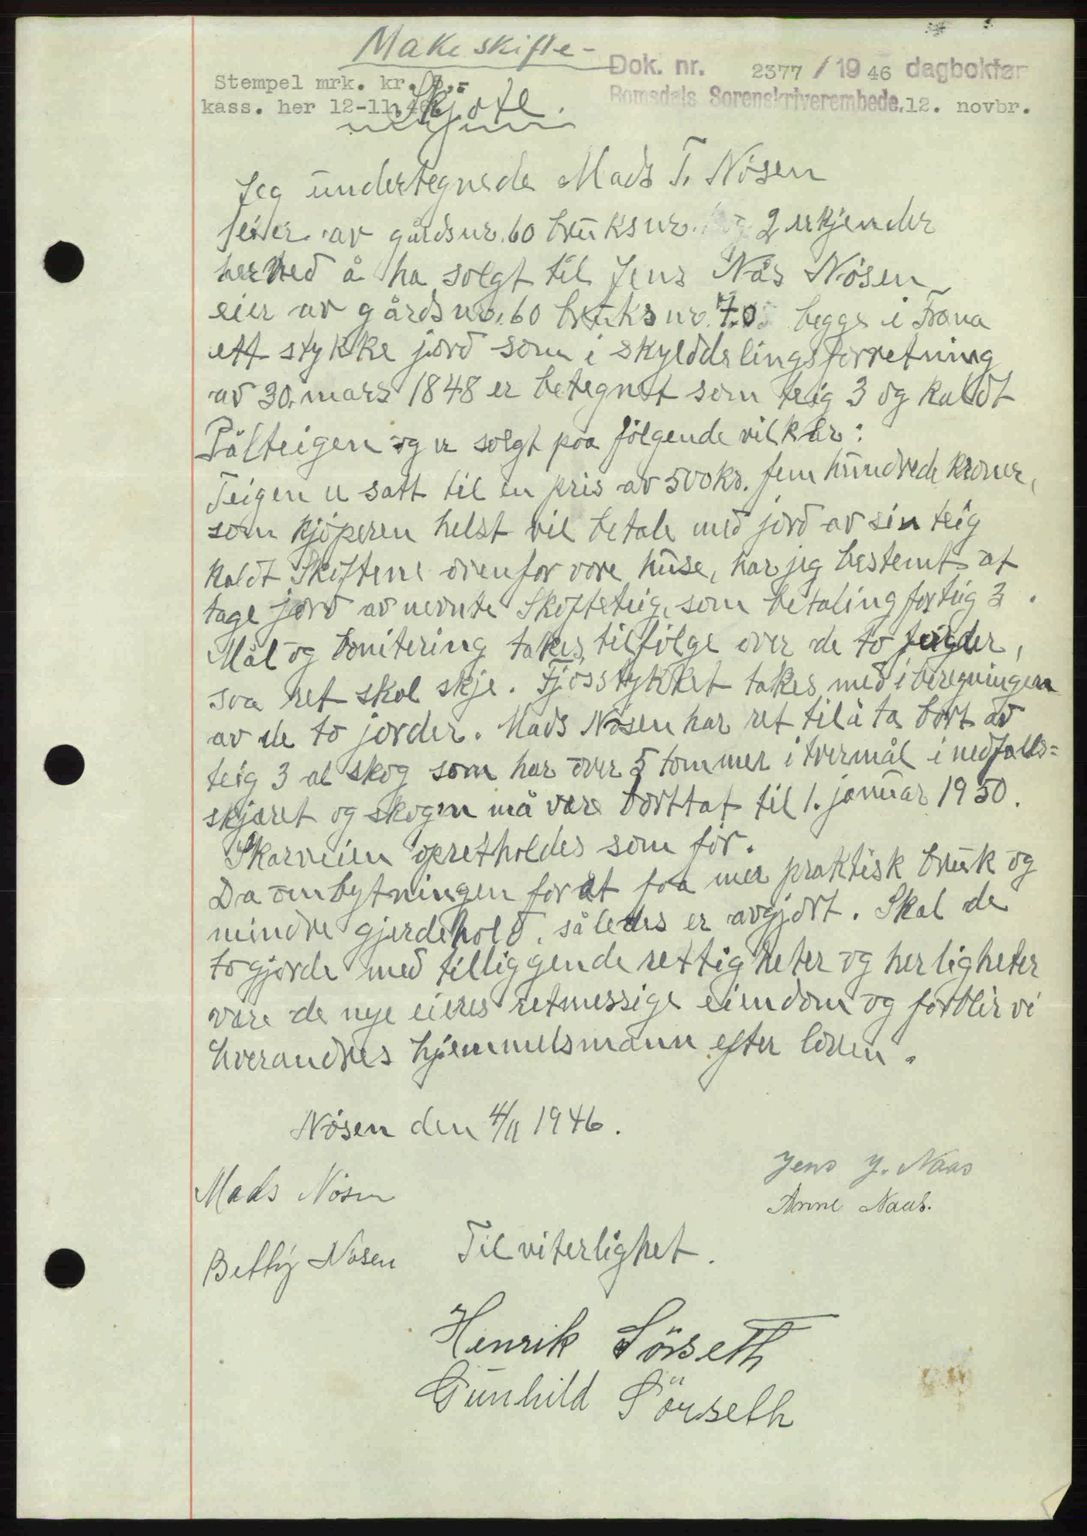 Makeskifte-
Dok. nr. 2377 / 19 46 dagbokfør
Stempel mrk. kr.
kass. her 12-11.46
Romsdals Sorenskriverembede, 12. novbr.
Skjøte.
Jeg undertegnede Mads T. Nøsen
eier av gårdsnr. 60 bruksnr. 2 erkjender
herved å ha solgt til Jens Nås Nøsen
eier av gårdsnr. 60 bruksnr. 7. begge i Fræna
ett stykke jord som i skylddelingsforretning
av 30. mars 1848 er betegnet som teig 3 og kaldt
Pålteigen og er solgt paa følgende vilkår:
Teigen er satt til en pris av 500 kr. fem hundrede kroner,
som kjøperen helst vil betale med jord av sin teig
kaldt Skoftene ovenfor vore huse, har jeg bestemt at
tage jord av nevnte Skofteteig, som betaling for teig 3.
Mål og bonitering takes tilfølge over de to teigder,
svo ret skal skje. Fjøsstykket takes med i beregningen
av de to jorder. Mads Nøsen har ret til å ta bort av
teig 3 al skog som har over 5 tommer i tvermål i nedfalls=
skjæret og skogen må være borttat til 1. januar 1950.
Skarveien opretholdes som før.
Da ombytningen for at faa mer praktisk bruk og
mindre gjerdehold, således er avgjort. Skal de
to gjorde med tilliggende rettigheter og herligheter
være de nye eieres retmessige eiendom og forblir vi
hverandres hjemmelsmann efter loven.
Nøsen den 4/11 1946.
Jens J. Naas
Mads Nøsen
Anne Naas.
Betty Nøsen
Til viterlighet.
Henrik Sörseth
Gunhild Sörseth